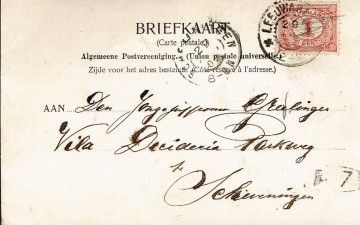 BRIEFKAART
(Carte postale)
Algemeene Postvereeniging. (Union postale universelle)
Zijde voor het adres bestemd. (Côté réservé à l'adresse.)
LEEUWARDEN
1
AAN Den
Villa Decideria Parkweg
Scheveningen
7